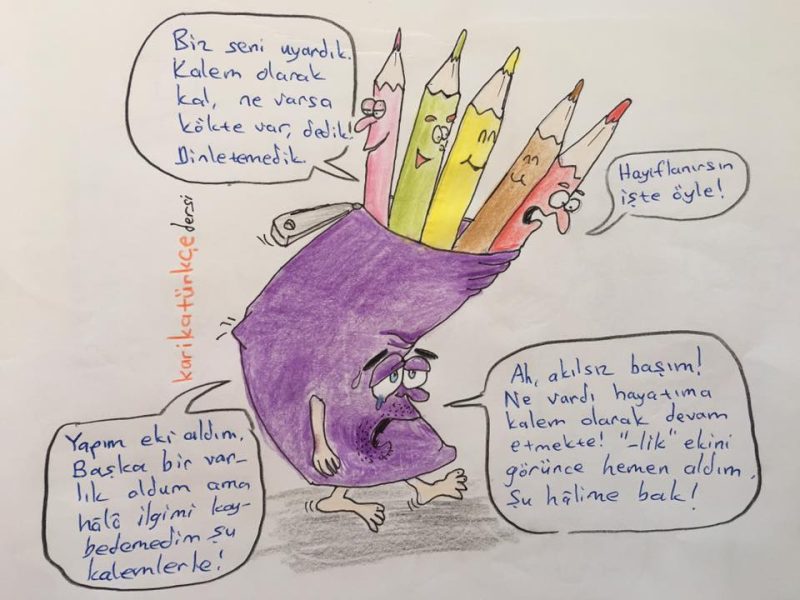 Biz seni uyardık.
Kalem olarak
kal, ne varsa
kökte var, dedik!
Dinletemedik.
Hayıflanırsın
işte öyle!
karikatürkçe dersi
Ah, akılsız başım!
Ne vardı hayatıma
kalem olarak devam
etmekte! "-lik" ekini
görünce hemen aldım.
Şu hâlime bak!
Yapım eki aldım.
Başka bir var-
lık oldum ama
hâlâ ilgimi kay-
bedemedim şu
kalemlerle!